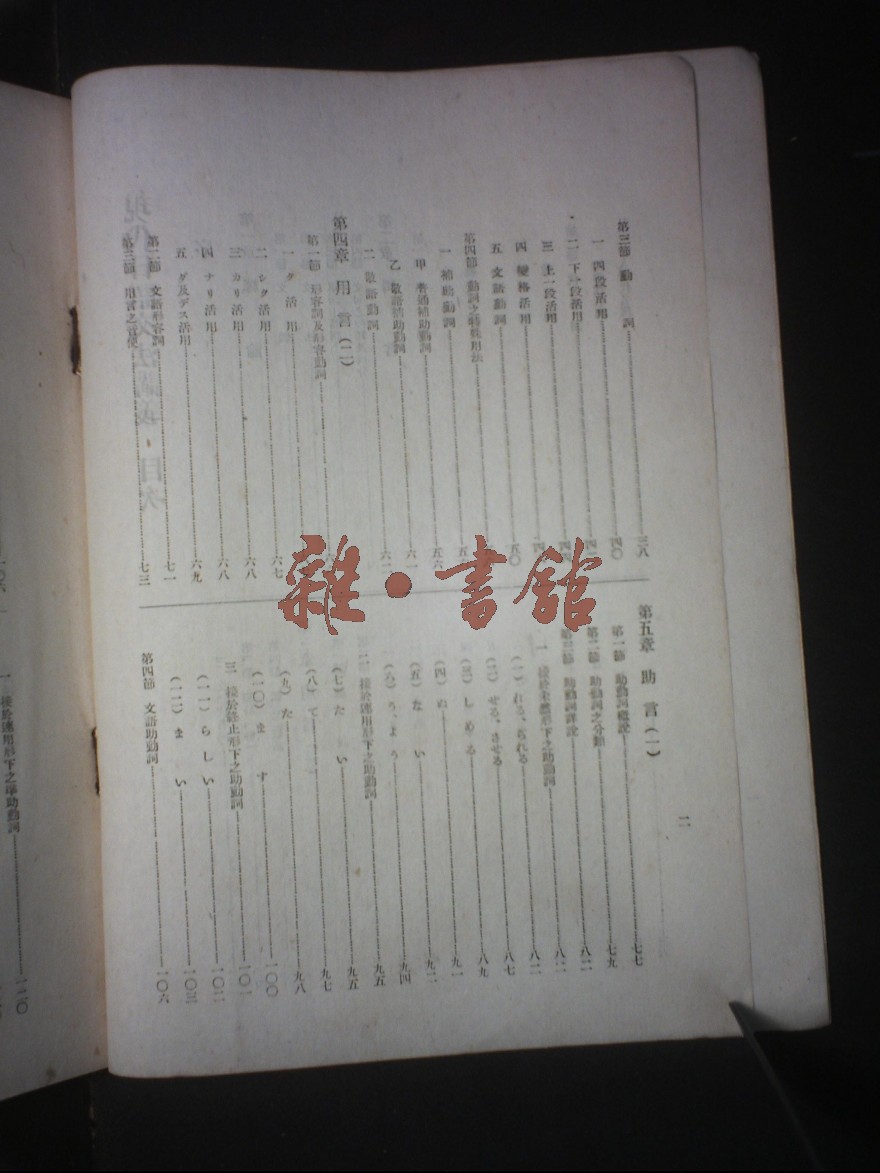 第三節 動詞……三八
一 四段活用……四〇
二 下一段活用
三 上一段活用
四 變格活用
五 文語動詞……五〇
第四節 動詞之特殊用法
一 補助動詞……五六
甲 普通補助動詞……六一
乙 敬語補助動詞……六一
二 敬語動詞
第四章 用言(二)
第一節 形容詞及形容動詞
一 ク活用……六七
二 シク活用……六八
三 カリ活用……六八
四 ナリ活用……六九
五 ダ及デス活用
第二節 文語形容詞……七一
第三節 用言之音便……七三
第五章 助言(一)
第一節 助動詞概說……七七
第二節 助動詞之分類……七九
第三節 助動詞詳說……八二
一 接於未然形下之助動詞……八二
(一)れる、られる……八二
(二)せる、させる……八七
(三)しめる……八九
(四)ぬ……九一
(五)ない……九二
(六)う、よう……九四
二 接於連用形下之助動詞……九五
(七)たい……九五
(八)て……九七
(九)た……九八
(一〇)ます……一〇〇
三 接於終止形下之助動詞……一〇一
(一一)らしい……一〇二
(一二)まい……一〇三
第四節 文語助動詞……一〇六
二
一 接於連用形下之準助動詞……一二〇
雜·書館